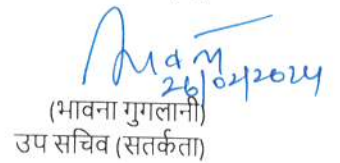 26/02/2024
(भावना गुगलानी)
उप सचिव (सतर्कता)